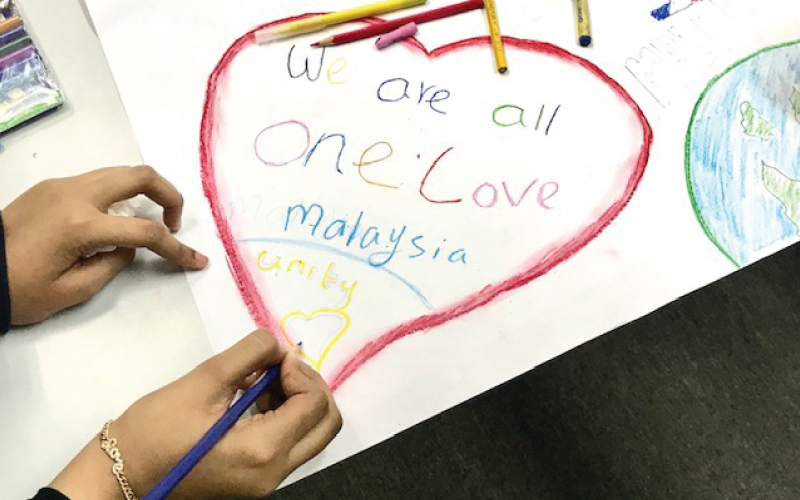 We are all
One Love
malaysia
unity